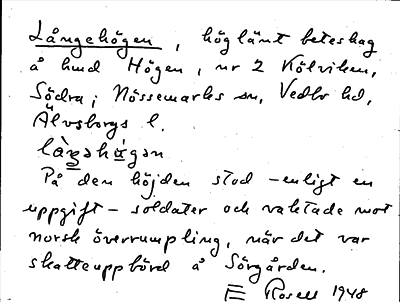 Långehögen, höglänt beteshag
å hmd Högen, nr 2 Kölviken,
Södra; Nössemarks sn, Vedbo hd,
Älvsborgs l.
làŋəhǻgən
På den höjden stod - enligt en
uppgift - soldater och vaktade mot
norsk överrumpling, när det var
skatteuppbörd å Sörgården.
E Rosell 1948